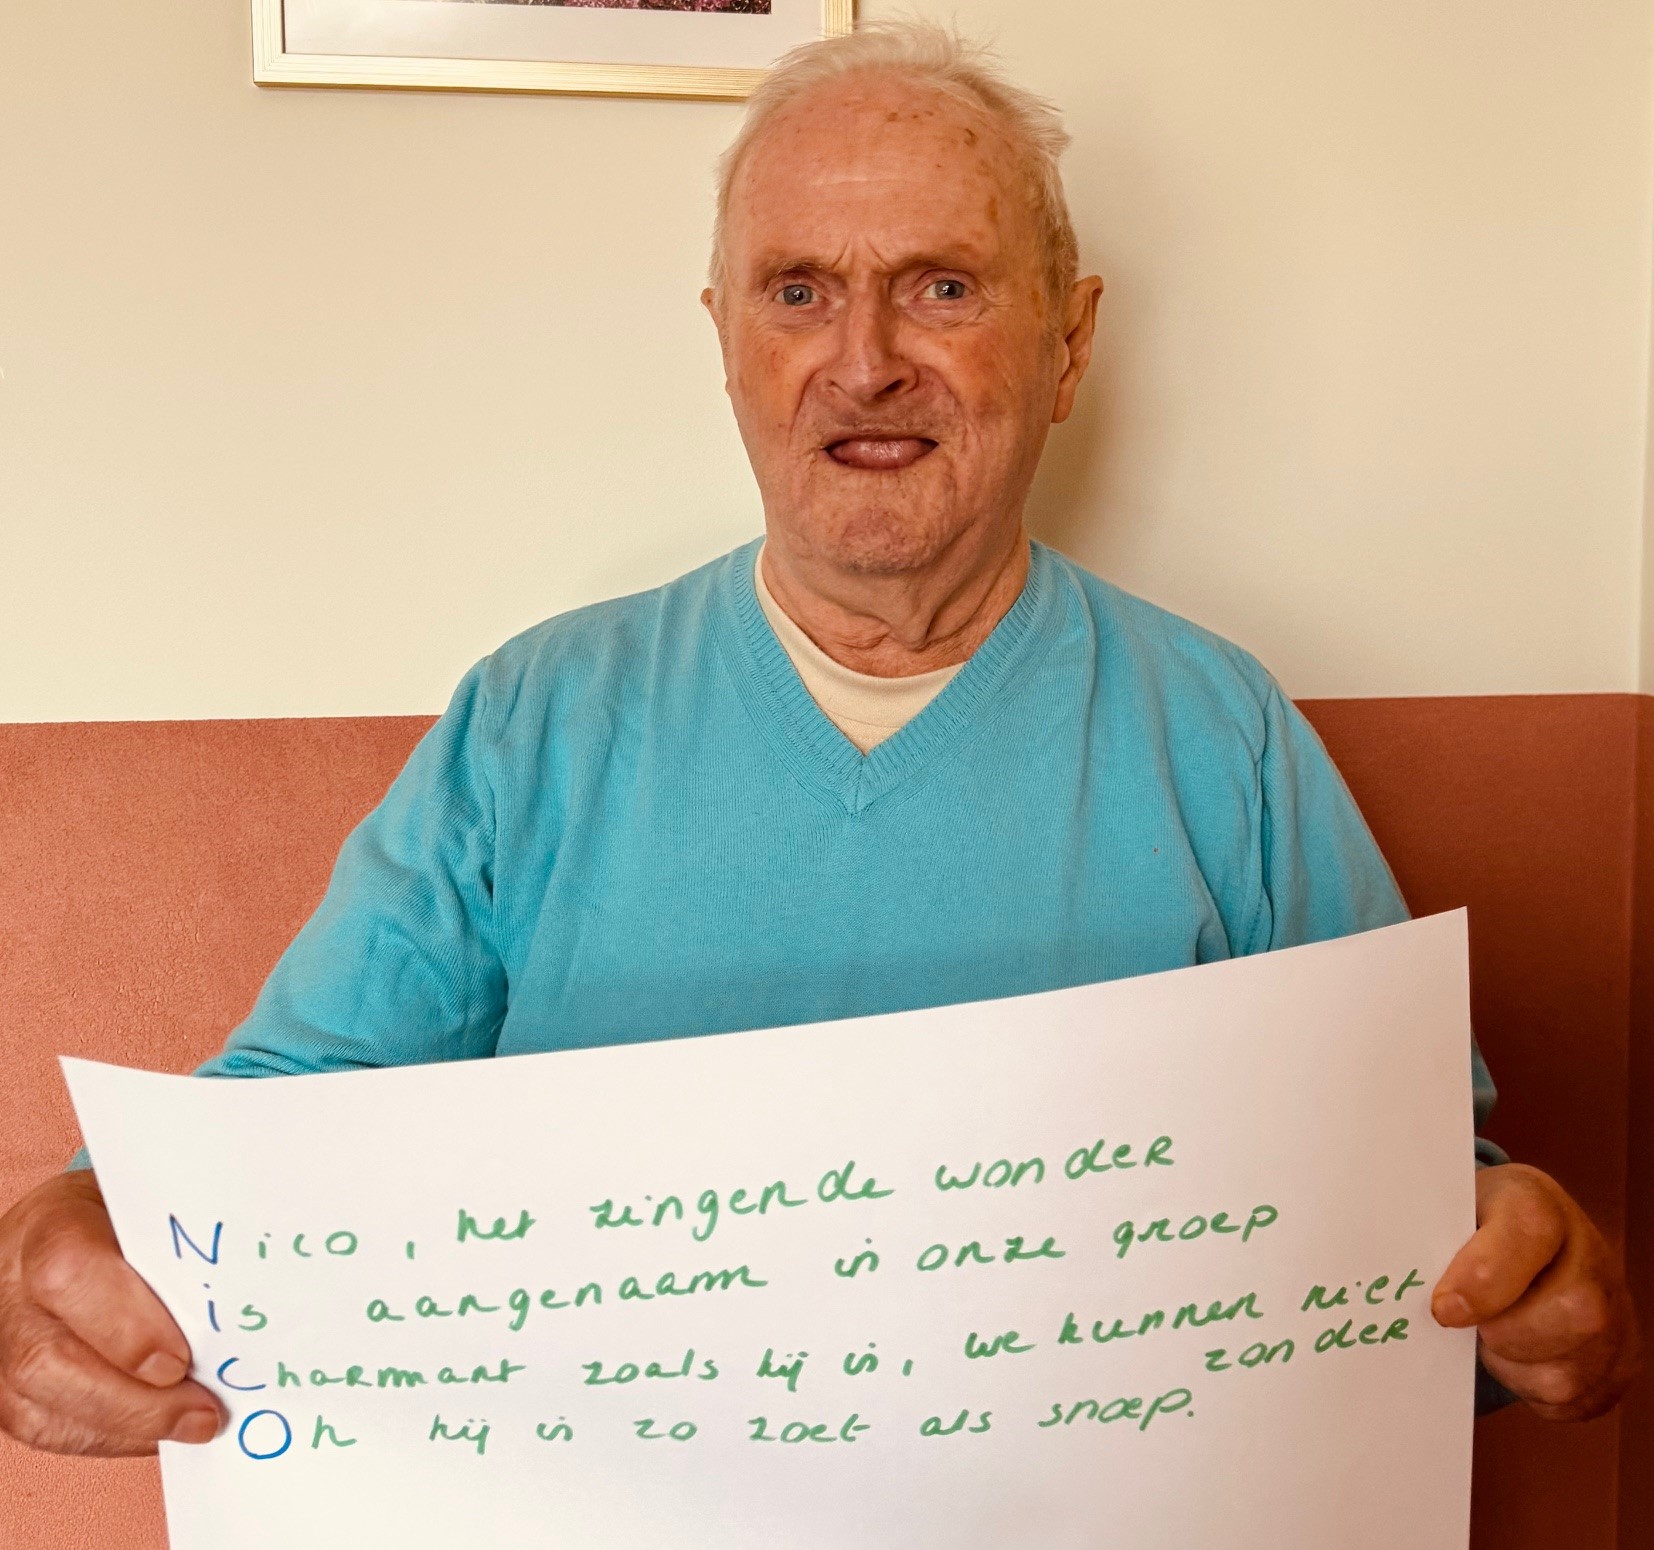 Nico, het zingende wonder
is aangenaam in onze groep
Charmant zoals hij is, we kunnen niet
zonder
Oh hij is zo zoet als snoep.